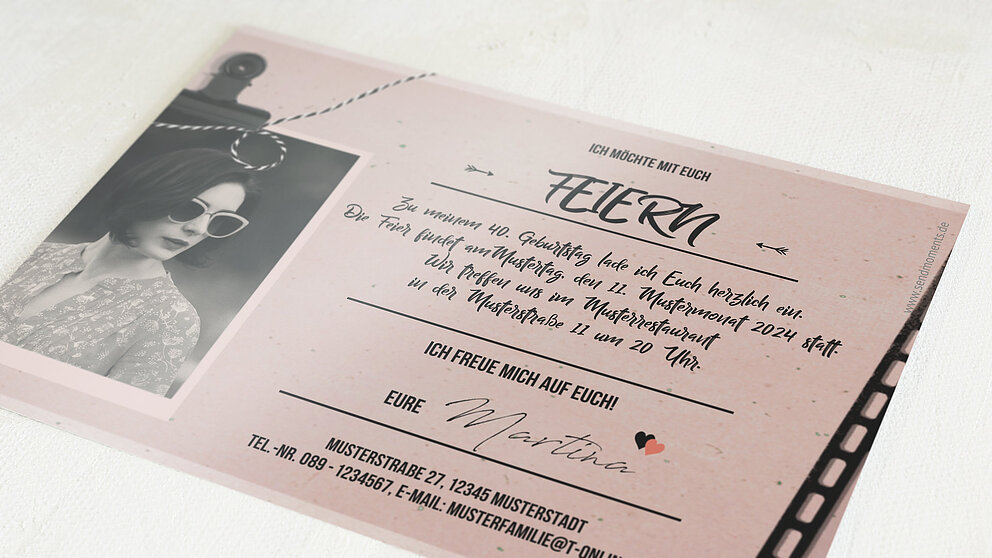 ICH MÖCHTE MIT EUCH
FEIERN
Zu meinem 40. Geburtstag lade ich Euch herzlich ein.
Die Feier findet am Mustertag, den 11. Mustermonat 2024 statt.
Wir treffen uns im Musterrestaurant
in der Musterstraße 11 um 20 Uhr.
ICH FREUE MICH AUF EUCH!
EURE Martina
MUSTERSTRAßE 27, 12345 MUSTERSTADT
TEL. -NR. 089 - 1234567, E-MAIL: MUSTERFAMILIE@T-ONLIN
www.sendmoments.de